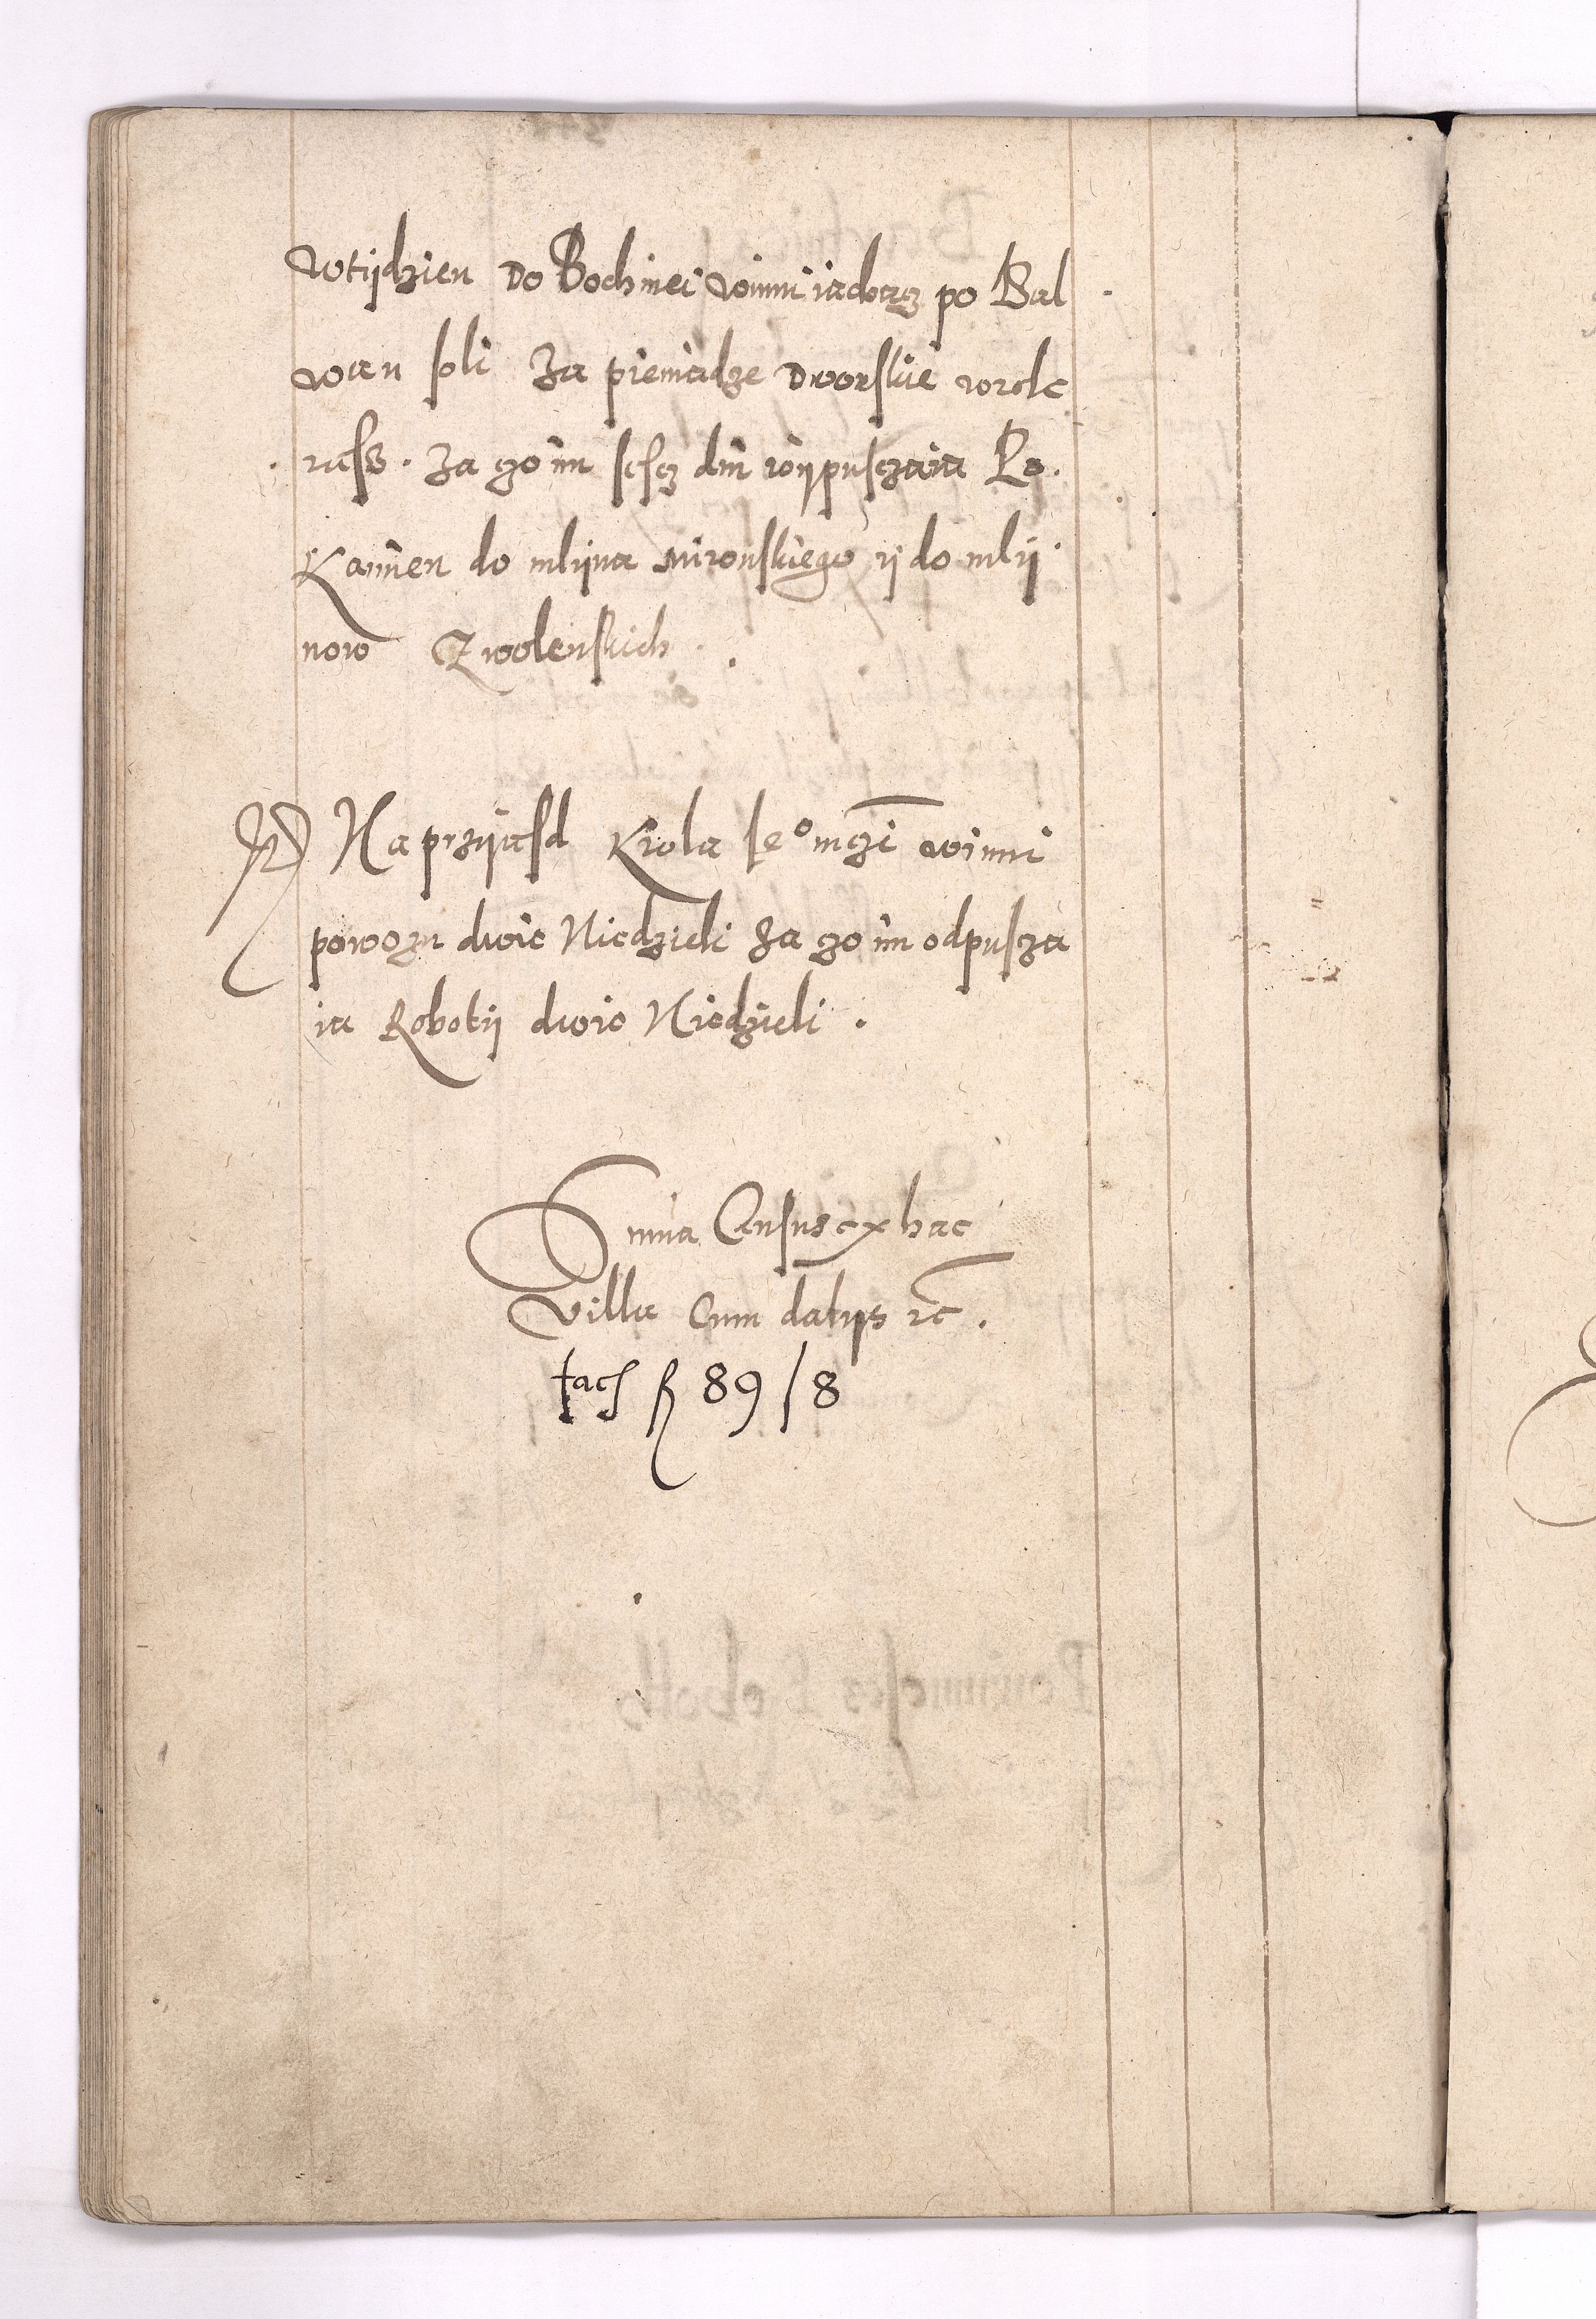 wtijdzien do Bochniei winni iachacz po Bal
wan soli Za pieniadze dworskie wrolc
rass. Za czo im sescz dni wijpusczaia Po.
Kamien do mlijna mironskiego ij do mlij
now Zwolenskich.
Na przijasd Krola Ieº mczi winni
powozu dwie Niedzieli Za czo im odpuscza
ia Robotij dwie Niedzieli.
Suma Census ex hac
villa Cum datijs etc.
facit fl 89/8